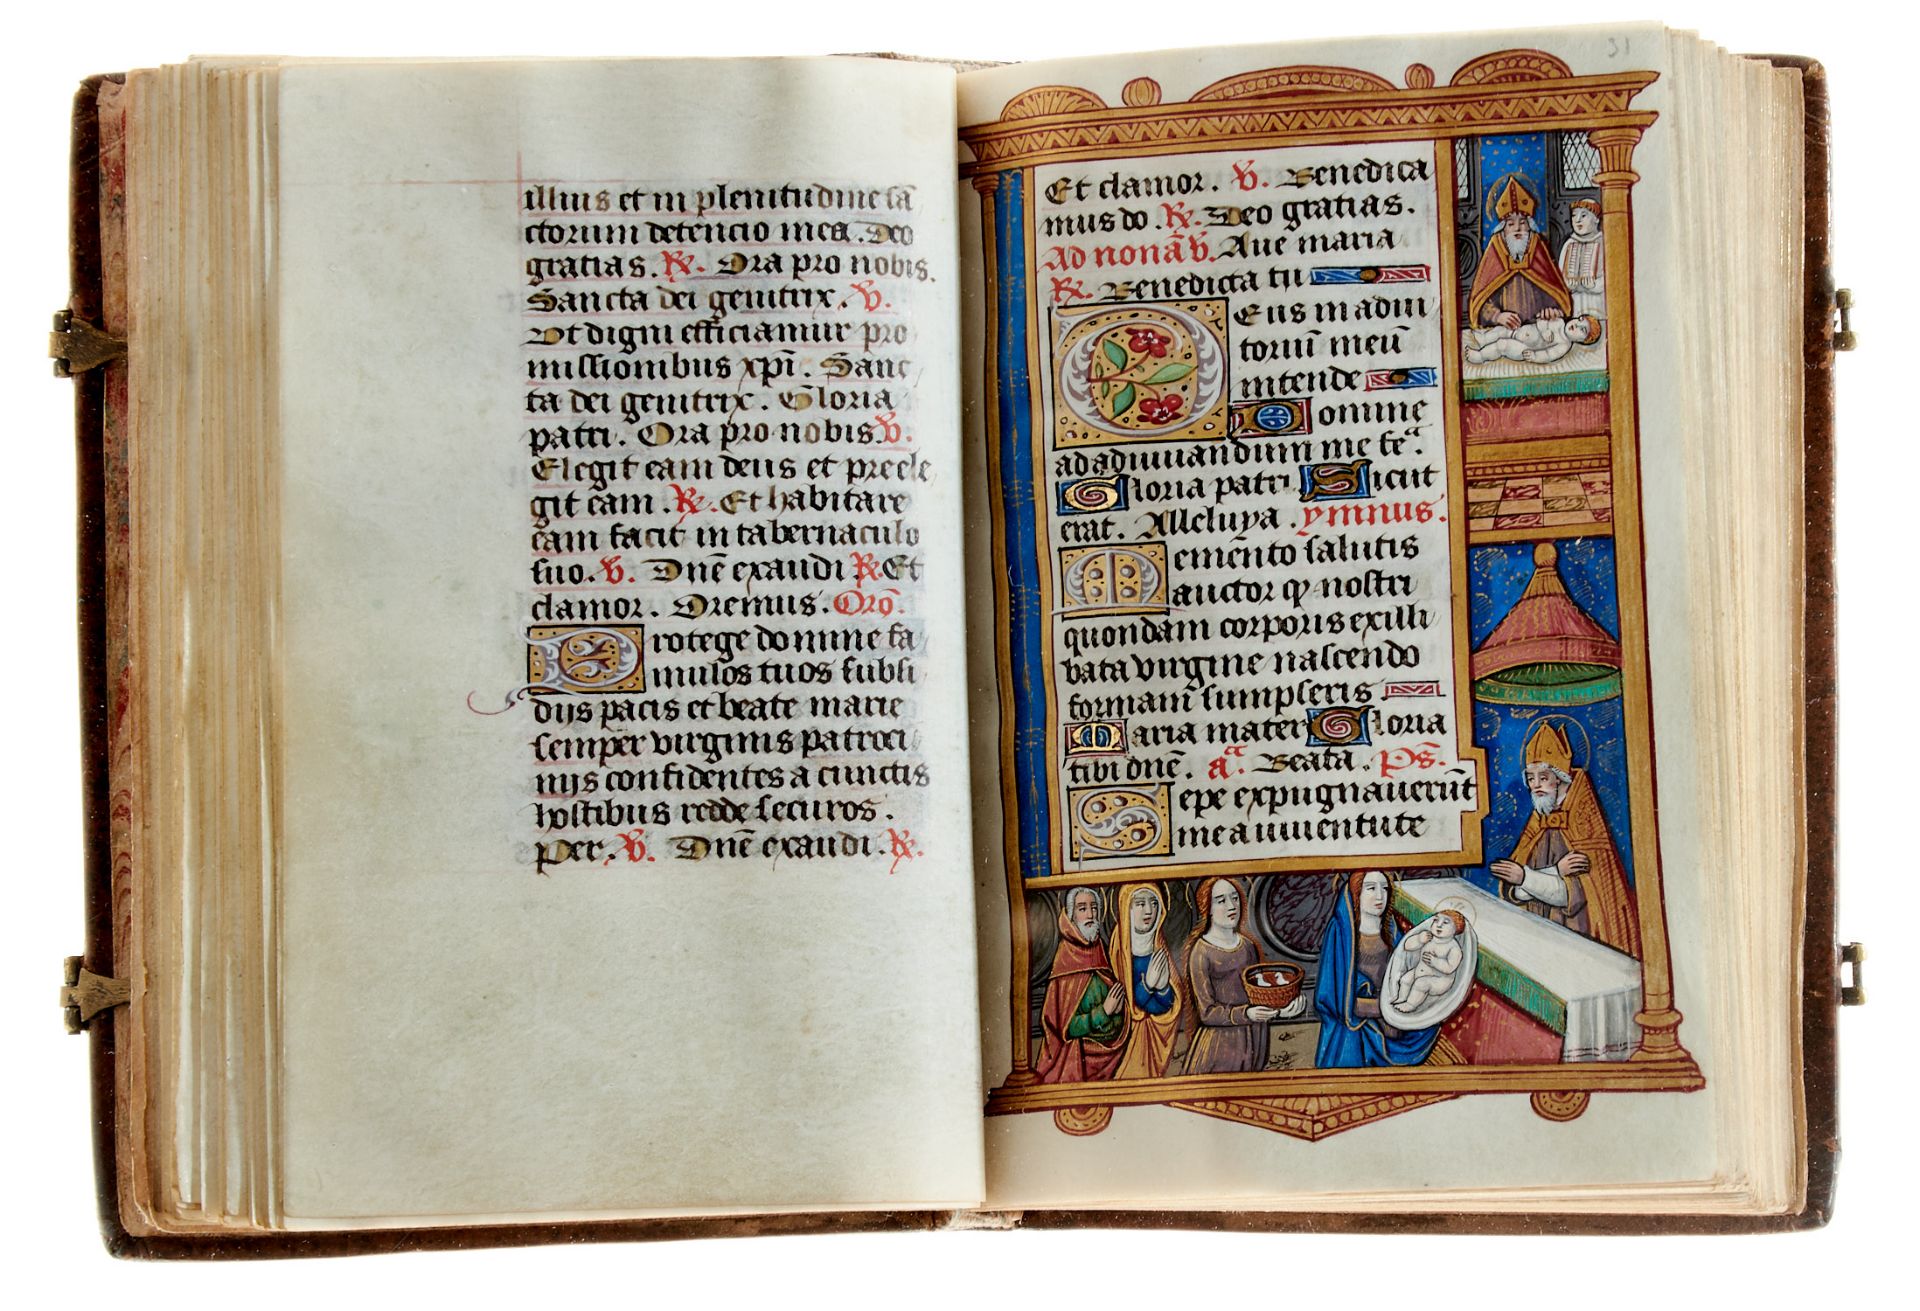 illius et in plenitudine sā
ctorum detencio mea. Deo
gratias. R̸. Ora pro nobis.
Sancta dei genitrix. V̸.
Vt digni efficiamur pro
missionibus xp̄i. Sanc
ta dei genitrix. Gloria
patri. Ora pro nobis. V̸.
Elegit eam deus et preele
git eam. R̸. Et habitare
eam facit in tabernaculo
suo. V̸. Dn̄e exaudi R̸. Et
clamor. Oremus. Orō.
Protege domine fa
mulos tuos subsi
diis pacis et beate marie
semper virginis patroci
niis confidentes a cunctis
hostibus redde securos.
Per. V̸. Dn̄e exaudi. R̸.
31
Et clamor. V̸. Benedica
mus do. R̸. Deo gratias.
Ad nonā V̸. Aue maria
R̸. Benedicta tu
Deus in adiu
toriū meū
intende
Domine
ad adiuuandum me feᵃ.
Gloria patri Sicut
erat. Alleluya. ymnus.
Memēnto salutis
auctor qͥ nostri
quondam corporis ex illi
bata virgine nascendo
formam sumpseris
Maria mater Gloria
tibi dn̄e. aᵃ. Beata. Ps̄.
Sepe expugnauerūt
me a iuuentute